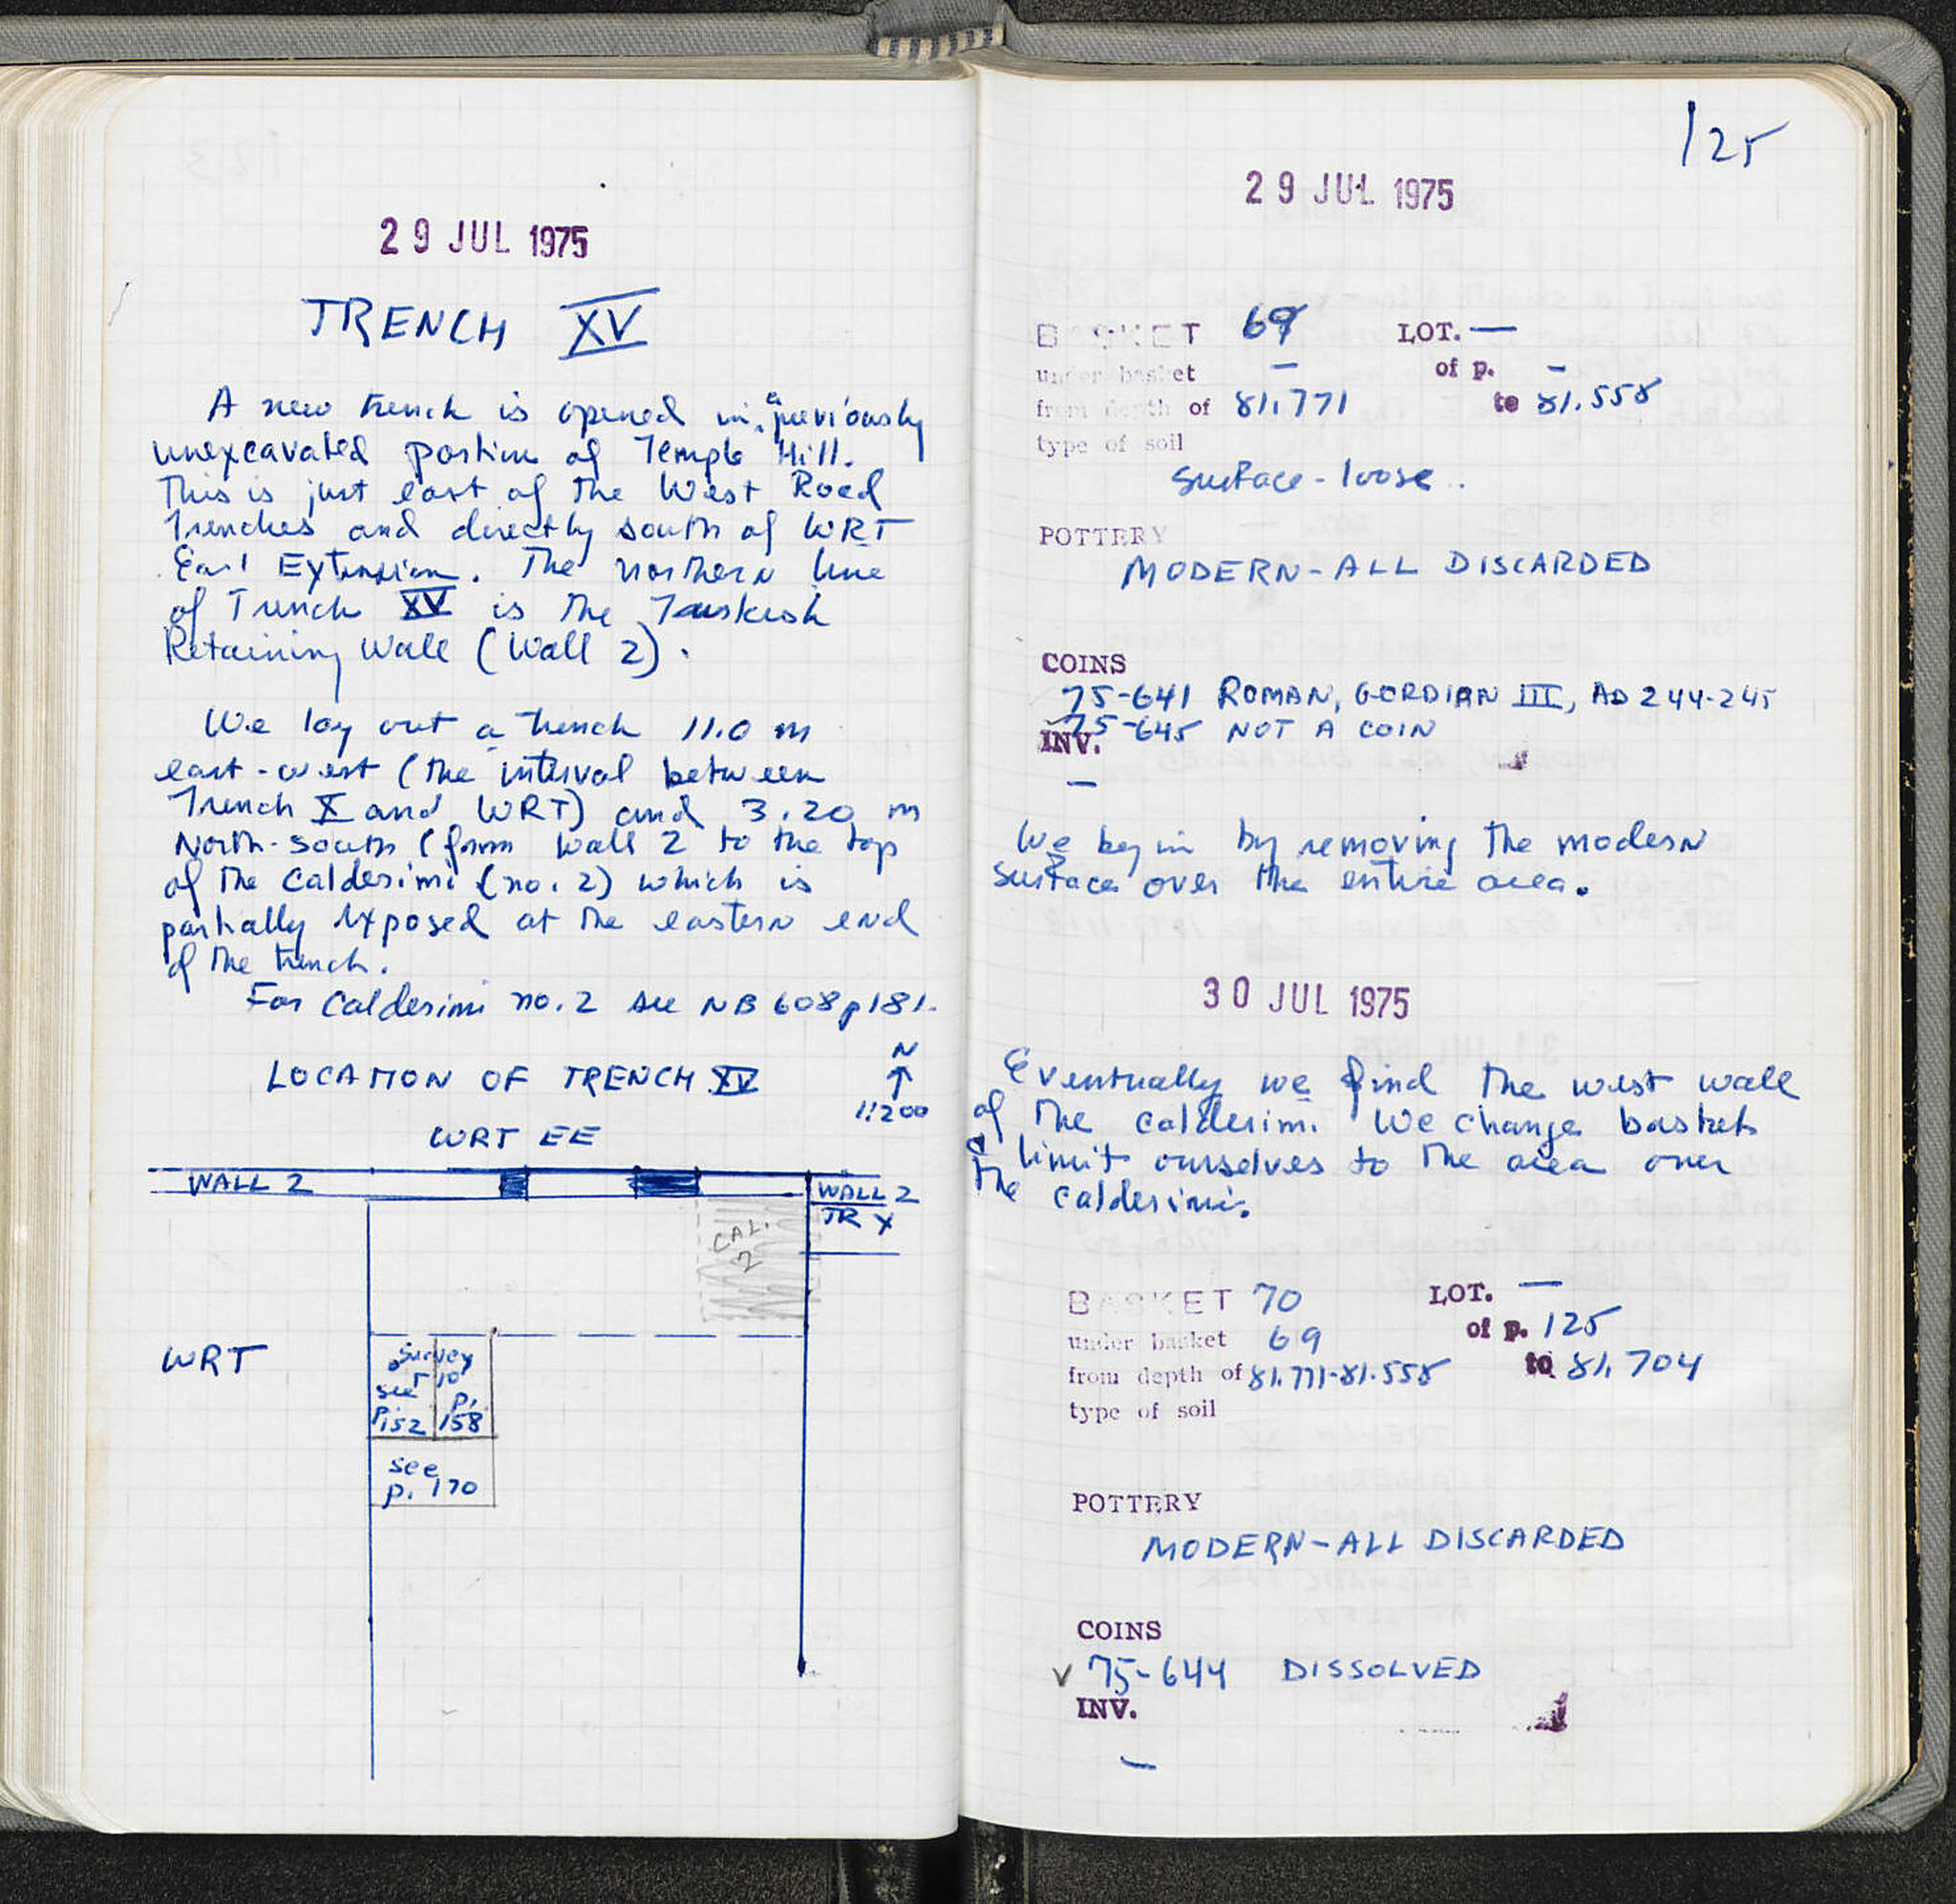 29 JUL 1975
TRENCH XV
A new trench is opened in a previously
unexcavated portion of Temple Hill.
This is just east of the West Road
Trenches and directly south of WRT
East Extension. The northern line
of Trench XV is the Turkish
Retaining Wall (Wall 2).
We lay out a trench 11.0 m
east-west (the interval between
Trench X and WRT) and 3.20 m
North-south (from Wall 2 to the top
of the Calderimi (no. 2) which is
partially exposed at the eastern end
of the trench.
For Calderimi no. 2 see NB 608 p 181.
LOCATION OF TRENCH XV
N
1:200
WRT EE
WALL 2
WALL 2
TR X
CAL.
2
WRT
Survey
see
p. 152
p.
158
see
p. 170
125
29 JUL 1975
BASKET 69 LOT. —
under basket — of p. —
from depth of 81.771 to 81.558
type of soil
Surface - loose.
POTTERY
MODERN - ALL DISCARDED
COINS
75-641 ROMAN, GORDIAN III, AD 244-245
75-645 NOT A COIN
INV.
—
We begin by removing the modern
surface over the entire area.
30 JUL 1975
Eventually we find the west wall
of the calderimi. We change baskets
& limit ourselves to the area over
the calderimi.
BASKET 70 LOT. —
under basket 69 of p. 125
from depth of 81.771-81.558 to 81.704
type of soil
POTTERY
MODERN - ALL DISCARDED
COINS
v 75-644 DISSOLVED
INV.
—